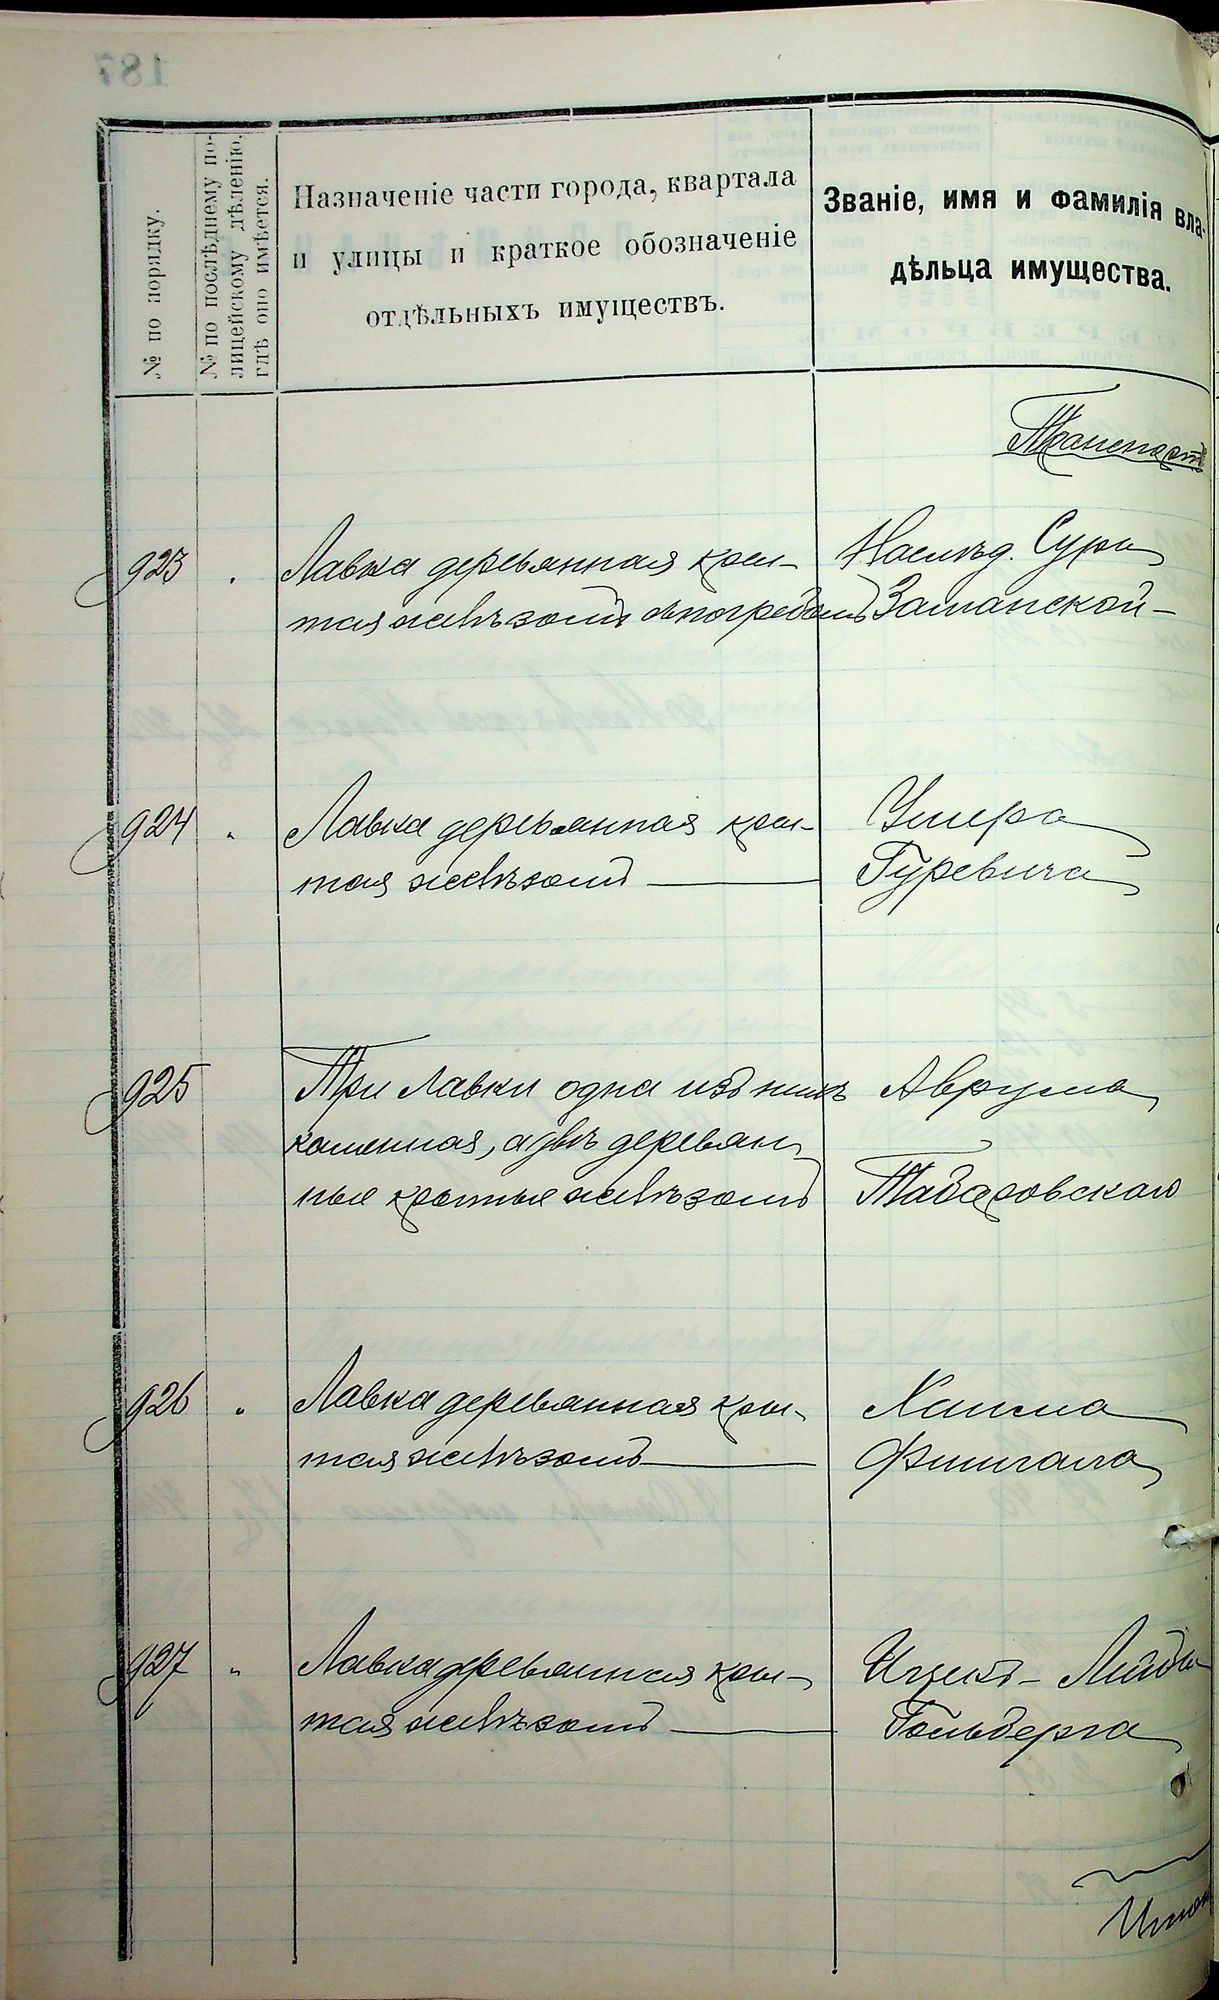 № по порядку.
№ по послѣднему по-
лицейскому дѣленію,
гдѣ оно имѣется.
Назначеніе части города, квартала
и улицы и краткое обозначеніе
отдѣльныхъ имуществъ.
Званіе, имя и фамилія вла-
дѣльца имущества.
Транспортъ
923 Лавка деревянная кры- Наслѣд. Суры
тая желѣзомъ съ погребомъ Заманской
924 " Лавка деревянная кры- Ушера
тая желѣзомъ Гуревича
925 Три лавки одна изъ нихъ Аврума
каменная, а двѣ деревян
ныя крытыя желѣзомъ Табаровскаго
926 " Лавка деревянная кры- Хаима
тая желѣзомъ
927 " Лавка деревянная кры- Ицекъ-
тая желѣзомъ Гольберга
Итого